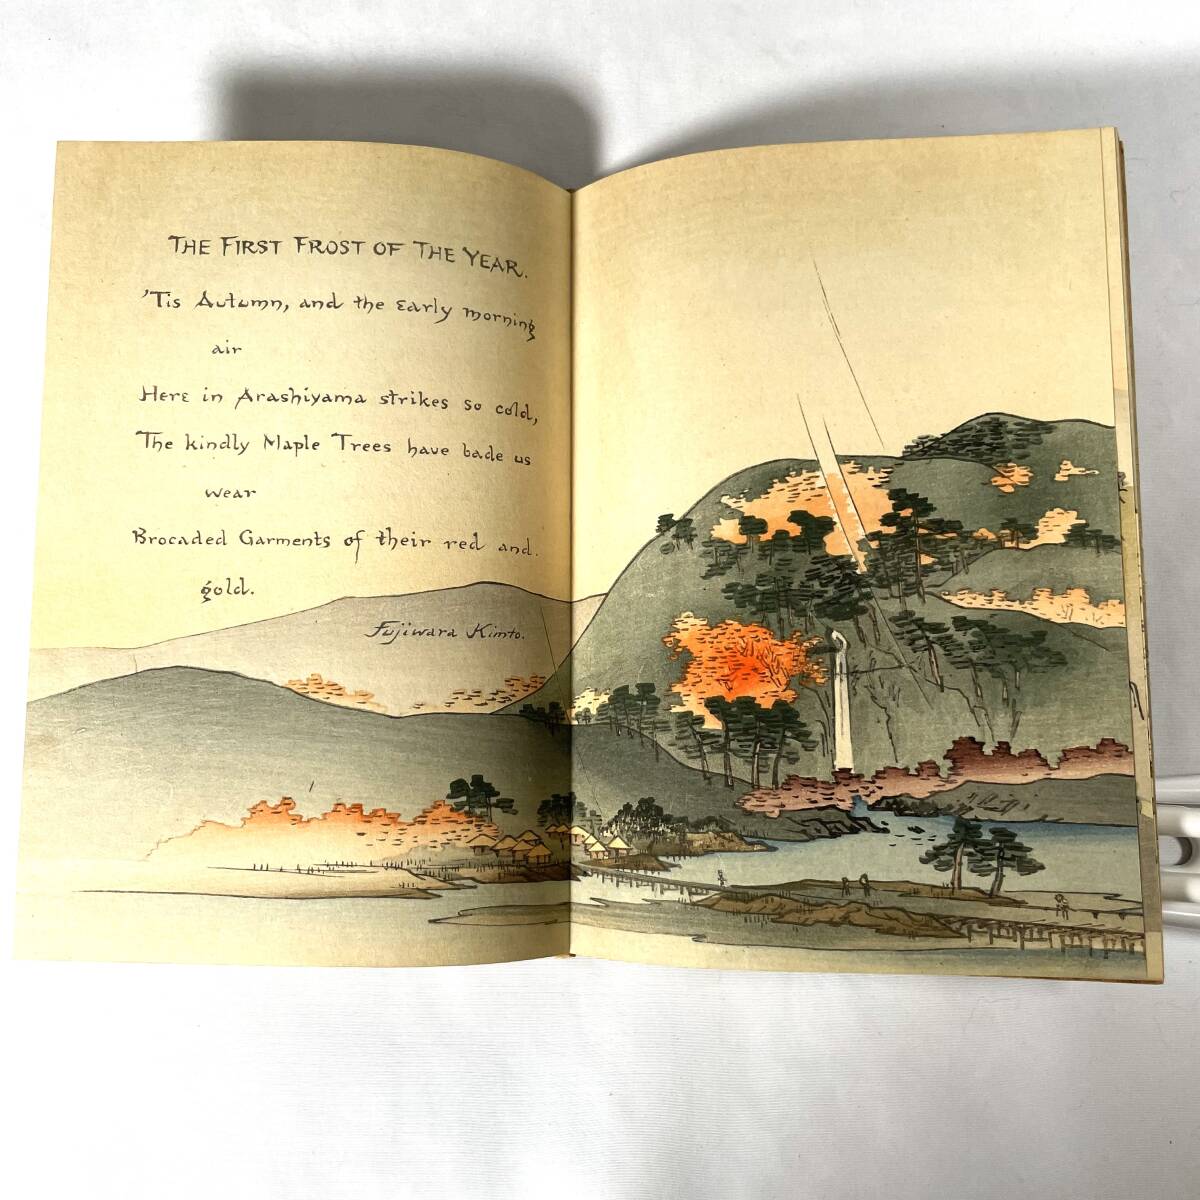 THE FIRST FROST OF THE YEAR.
'Tis Autumn, and the early morning
air
Here in Arashiyama strikes so cold,
The kindly Maple Trees have bade us
wear
Brocaded Garments of their red and
gold.
Fujiwara Kinto.